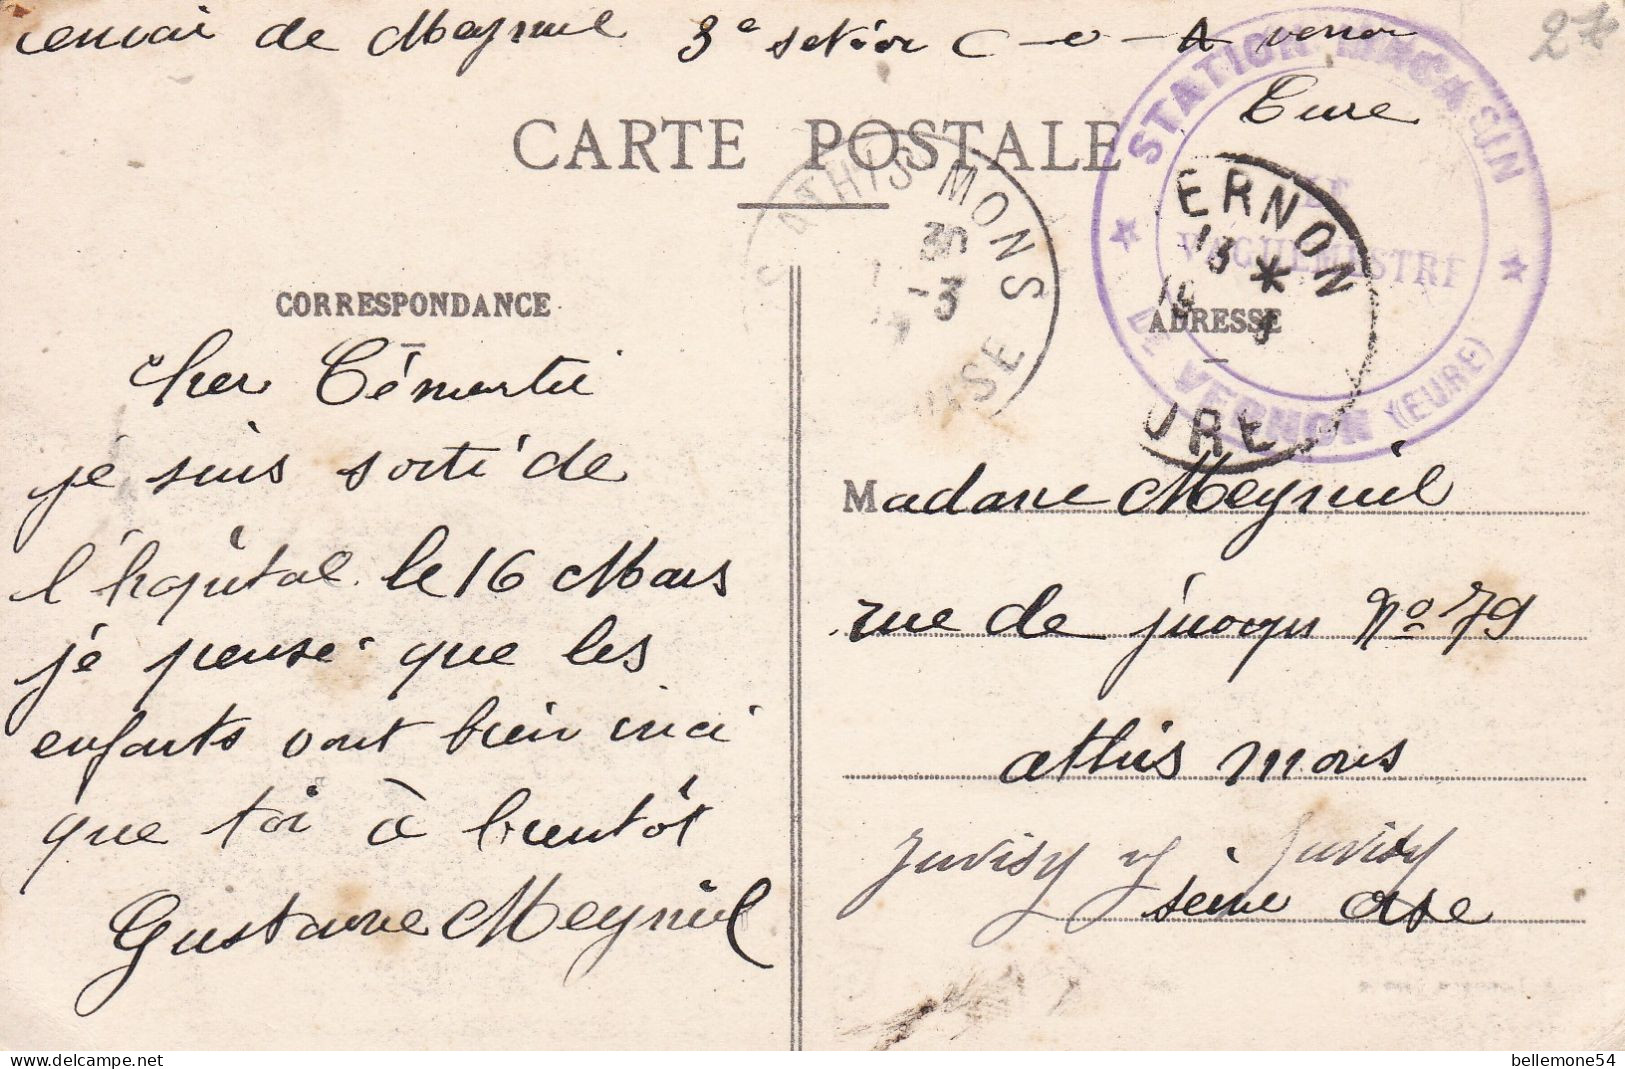 envoi de Meyniel 3e setior C-o-A vernon
Eure
27
CARTE POSTALE
STATION MAGASIN
LE
VAGUEMESTRE
DE VERNON (EURE)
ATHIS MONS
OISE
ERNON
13 *
URE
CORRESPONDANCE
ADRESSE
cher Clémortie
je suis sorti de
l'hopital le 16 Mars
je pense que les
enfants vont bien inci
que toi à bientôt
Gustave Meyniel
Madame Meyniel
rue de juvisy No 79
athis mons
Juvisy Juvisy
seine oise
bellemone54